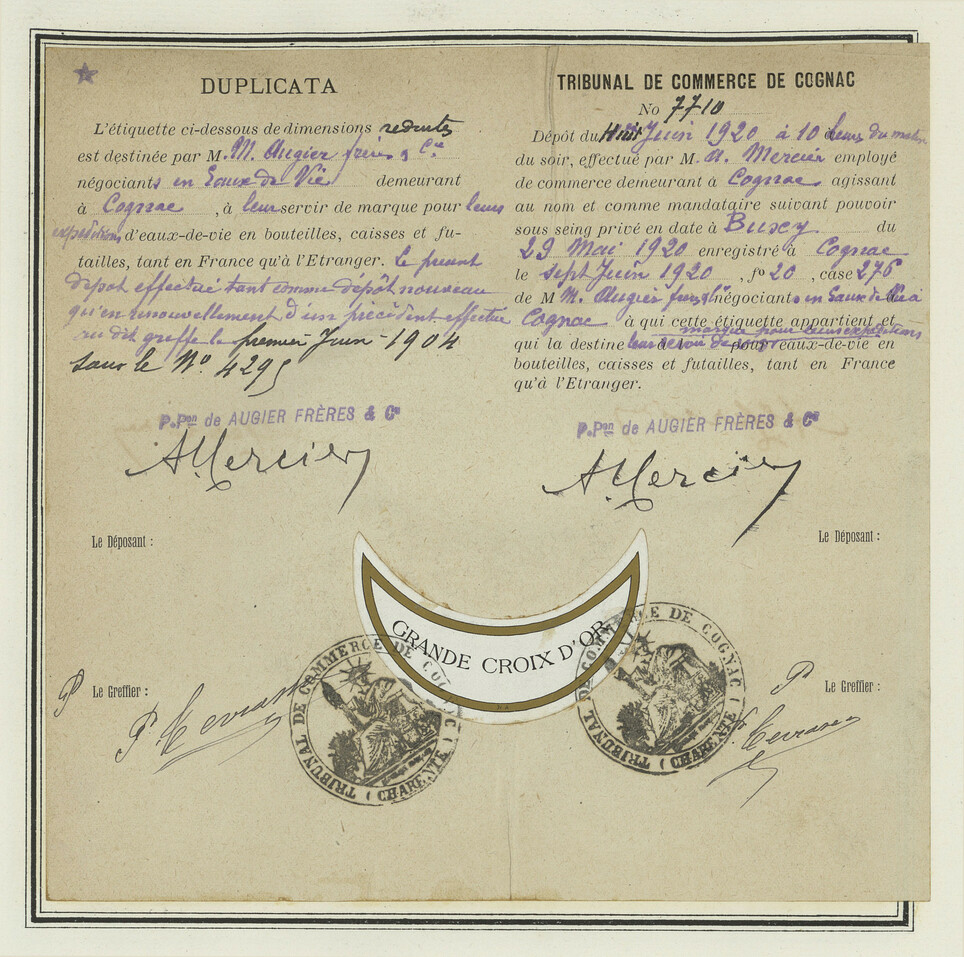 DUPLICATA
L'étiquette ci-dessous de dimensions reduites
est destinée par M. M. Augier frères & Cie
négociants en Eaux de Vie demeurant
à Cognac, à leur servir de marque pour leurs
expeditions d'eaux-de-vie en bouteilles, caisses et fu-
tailles, tant en France qu'à l'Etranger. Le present
depot effectué tant comme dépôt nouveau
qu'en renouvellement d'un précédent effectué
au dit greffe le premier Juin 1904
sous le No 4295
P.Pon de AUGIER FRÈRES & Cie
A. Mercier
Le Déposant :
Le Greffier :
TRIBUNAL DE COMMERCE DE COGNAC
No 7710
Dépôt du Huit Juin 1920 à 10 heures du matin
du soir, effectué par M. A. Mercier employé
de commerce demeurant à Cognac agissant
au nom et comme mandataire suivant pouvoir
sous seing privé en date à du
29 Mai 1920 enregistré à Cognac
le sept Juin 1920, fo 20, case 276
de M M. Augier frères négociants en Eaux de Vie à
Cognac à qui cette étiquette appartient et
qui la destine marque pour leurs expéditions
eaux-de-vie en
bouteilles, caisses et futailles, tant en France
qu'à l'Etranger.
P.Pon de AUGIER FRÈRES & Cie
A. Mercier
Le Déposant :
Le Greffier :
GRANDE CROIX D'OR
TRIBUNAL DE COMMERCE DE COGNAC (CHARENTE)
TRIBUNAL DE COMMERCE DE COGNAC (CHARENTE)